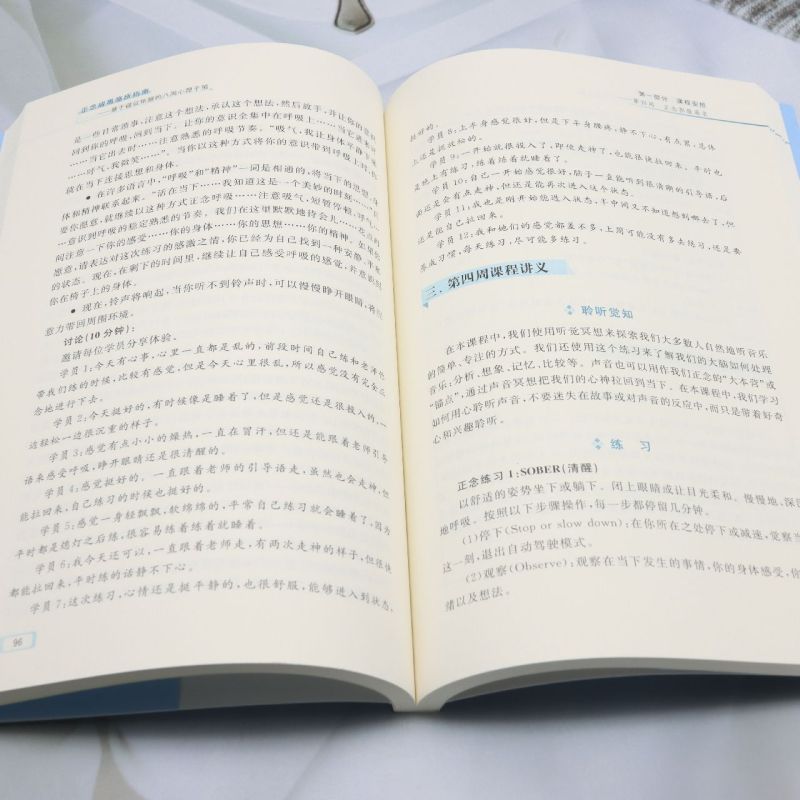 正念戒毒康复指南
——基于循证依据的八周心理干预
是一些日常琐事,注意这个想法,承认这个想法,然后放手,并让你的意识
回到你的呼吸,回到当下。让你的意识全集中在呼吸上……当它进来时
……当它出去时……注意熟悉的呼吸节奏。“吸气,我让身体平静下来
……呼气,我微笑……”。当你以这种方式将你的意识带到呼吸上时,你
就在当下连接思想和身体。
● 在许多语言中,“呼吸”和“精神”一词是相通的,将当下的思想、身
体和精神联系起来。“活在当下……我知道这是一个美妙的时刻……只
要你愿意,就继续以这种方式正念呼吸……注意吸气,短暂停顿,呼气
…意识到呼吸的稳定熟悉的节奏。我们在这里默默地待会儿……花点时
间注意一下你的感受……你的身体……你的思想……你的精神。如果你
愿意,请表达对这次练习的感激之情,你已经为自己找到一种安静、平和
的状态。现在,在剩下的时间里,继续让自己感受呼吸的感觉,并意识到
你在椅子上的身体。
● 现在,铃声将响起,当你听不到铃声时,可以慢慢睁开眼睛,将注
意力带回周围环境。
讨论(10 分钟):
邀请每位学员分享体验。
学员 1:今天有心事,心里一直都是乱的,前段时间自己练和老师
带我们练的时候,比较有感觉,但是今天心里很乱,所以感觉没有完全正
念地进行下去。
学员 2:今天挺好的,有时候像是睡着了,但是感觉还是很投入的,一
边轻松一边很沉重的样子。
学员 3:感觉有点小小的燥热,一直在冒汗,但还是能跟着老师引导
语来感受呼吸,睁开眼睛还是很清醒的。
学员 4:感觉挺好的。一直跟着老师的引导语走,虽然也会走神,但
能拉回来,自己练习的时候也挺好的。
学员 5:感觉一身轻飘飘,软绵绵的,平常自己练习就会睡着了,因为
平时都是熄灯之后练,很容易练着练着就睡着。
学员 6:我今天还可以,一直跟着老师走,有两次走神的样子,但很快
都能拉回来,平时练的话静不下心。
学员 7:这次练习,心情还是挺平静的,也很舒服,能够进入到状态,
96
第一部分 课程安排
第四周
挺好的。
学员 8:上半身感觉很好,但是下半身腰疼,静不下心,有点累,总体
上还是挺放松的。
学员 9:一开始就很投入了,即使走神了,也能很快拉回来。平时也
是地上有练习,练着练着就睡着了。
学员 10:自己一开始感觉很好,脑子一直能听到很清晰的引导语,后
面还是会有点走神,但还是能再次进入这个状态。
学员 11:我也是刚开始能进入状态,但中间又不知道想到哪去了,但
还是能自己拉回来。
学员 12:我和她们的感觉都差不多,上周可能没有多去练习,还是要
养成习惯,每天练习,尽可能多练习。
三、第四周课程讲义
聆听觉知
在本课程中,我们使用听觉冥想来探索我们大多数人自然地听音乐
的简单、专注的方式。我们还使用这个练习来了解我们的大脑如何处理
音乐:分析、想象、记忆、比较等。声音也可以用作我们正念的“大本营”或
“锚点”,通过声音冥想把我们的心神拉回到当下。在本课程中,我们学习
如何用心聆听声音,不要迷失在故事或对声音的反应中,而只是带着好奇
心和兴趣聆听。
练 习
正念练习 1:SOBER(清醒)
以舒适的姿势坐下或躺下。闭上眼睛或让目光柔和。慢慢地、深深
地呼吸。按照以下步骤操作,每一步都停留几分钟。
(1)停下(Stop or slow down):在你所在之处停下或减速,觉察当
这一刻,退出自动驾驶模式。
(2)观察(Observe):观察在当下发生的事情,你的身体感受,你
绪以及想法。